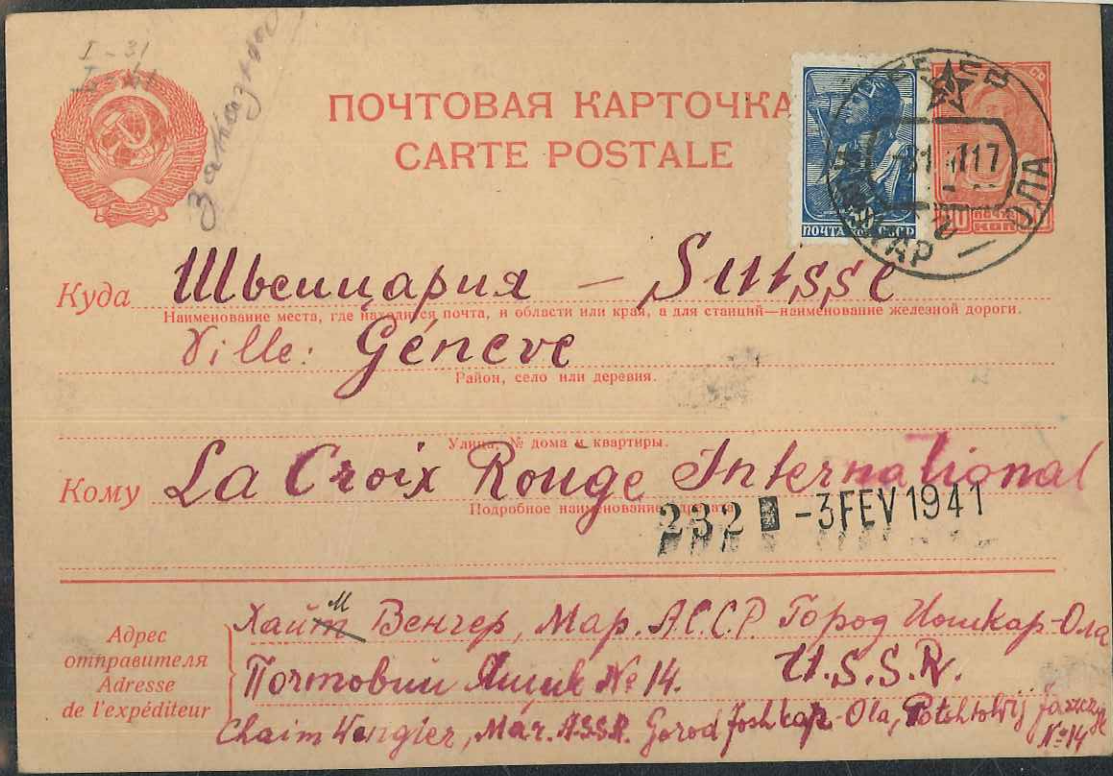 I - 31
заказное
ПОЧТОВАЯ КАРТОЧКА
CARTE POSTALE
ПОЧТА СССР
Куда Швеицария — Suisse
Наименование места, где находится почта, и области или края, а для станций—наименование железной дороги.
Ville: Géneve
Район, село или деревня.
Улица, № дома и квартиры.
Кому La Croix Rouge International
Подробное наименование адресата
232 -3 FEV 1941
Адрес отправителя
Adresse de l'expéditeur
Хаим Венгер, Мар. А.С.С.Р. Город Йошкар-Ола
Почтовий Ящик № 14. U.S.S.R.
Chaim Wengier, Mar. ASSR. Gorod Joshkar-Ola, Potchtowij
№ 14